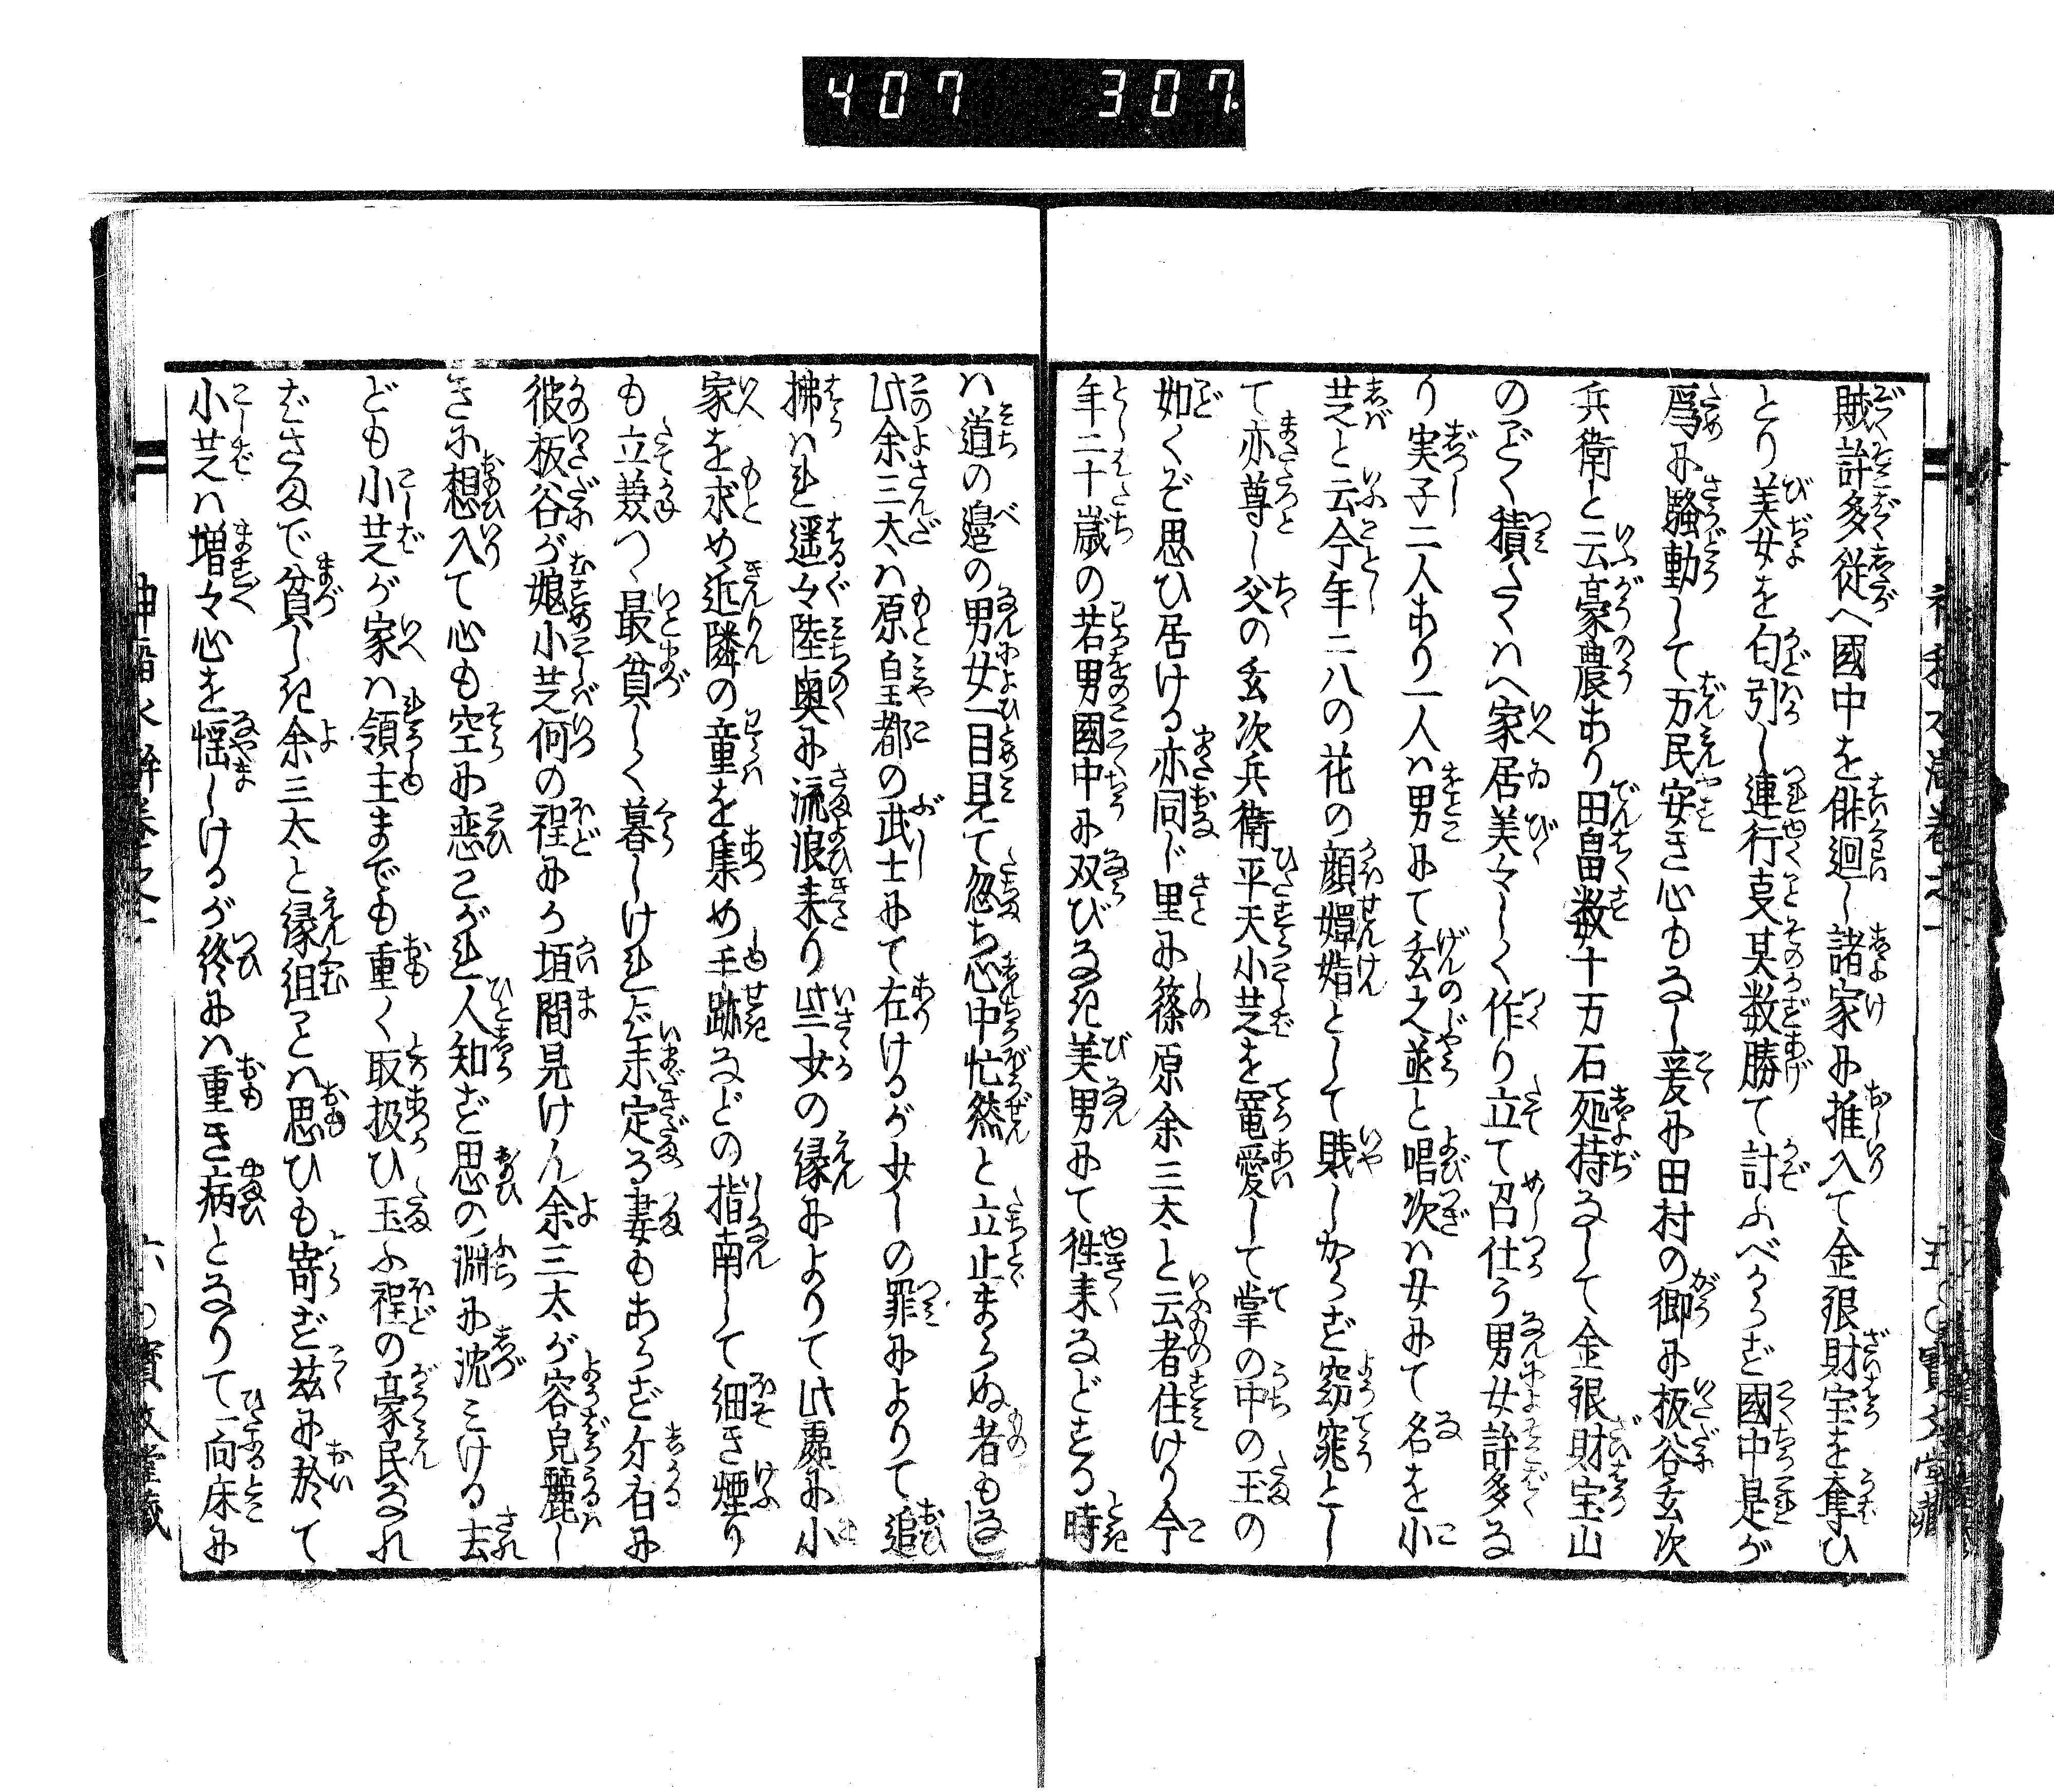 407 307.
賊許多従へ國中を俳廻し諸家に推入て金銀財宝を奪ひ
とり美女を勾引し連行支其数勝て計ふべからず國中是が
爲に騒動して万民安き心もなし爰に田村の郷に板谷玄次
兵衛と云豪農あり田畠数十万石処持なして金銀財宝山
のごとく積たくハへ家居美々しく作り立て召仕う男女許多な
り実子二人あり一人ハ男にて玄之亟と唱次ハ女にて名を小
芝と云今年二八の花の顔嬋娟として賎しからず窈窕とし
て亦尊し父の玄次兵衛平天小芝を寵愛して掌の中の玉の
如くぞ思ひ居ける亦同じ里に篠原余三太と云者住けり今
年二十歳の若男國中に双びなき美男にて徃来などする時
ハ道の邉の男女一目見て忽ち心中忙然と立止まらぬ者もなし
此余三太ハ原皇都の武士にて在けるが少しの罪によりて追
拂ハれ遥々陸奥に流浪来り些少の縁によりて此處に小
家を求め近隣の童を集め手跡などの指南して細き煙り
も立兼つゝ最貧しく暮しけれど未定る妻もあらず尓右に
彼板谷が娘小芝何の程にか垣間見けん余三太が容皃麗し
きに想入て心も空に恋こがれ人知ず思の淵に沈ミける去
ども小芝が家ハ領主までも重く取扱ひ玉ふ程の豪民なれ
ばさまで貧しき余三太と縁組とハ思ひも寄ず茲に於て
小芝ハ増々心を悩しけるが終にハ重き病となりて一向床に